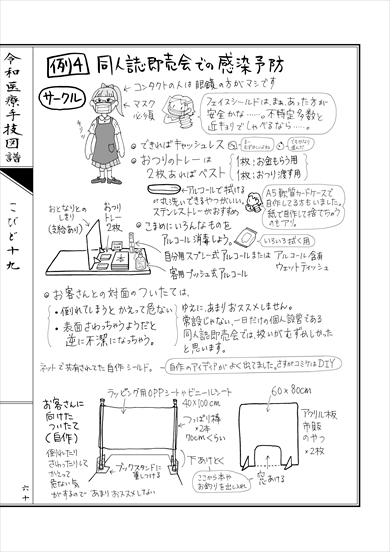 令和医療手技図譜
こびど十九
六十
例4 同人誌即売会での感染予防
サークル
コンタクトの人は眼鏡の方がマシです
マスク
必須
フェイスシールドは、まぁ、あった方が
安全かな……。不特定多数と
近キョリでしゃべるなら……。
できればキャッシュレス
おつりのトレーは
2枚あればベスト
1枚:お金もらう用
1枚:おつり渡す用
アルコールで拭ける
or丸洗いできるやつがいい。
ステンレストレーがおすすめ
A5軟質カードケースで
自作してる方もいました。
紙で自作して捨てちゃう
のもアリ。
おとなりとの
しきり
(支給あり)
おつり
トレー
2枚
本
こまめにいろんなものを
アルコール消毒しよう。
いろいろ拭く用
自分用スプレー式アルコール または アルコール含有
ウェットティッシュ
客用プッシュ式アルコール
お客さんとの対面のついたては、
・倒れてしまうと かえって危ない
・表面さわっちゃうようだと
逆に不潔になっちゃう。
ゆえに、あまりおススメしません。
常設じゃない、一日だけの個人設営である
同人誌即売会では、扱いがむずかしかった
と思います。
ネットで共有されてた自作シールド。
自作のアイディアがよく出てました。さすがコミケはDIY
お客さんに
向けた
ついたて
(自作)
倒れたり
さわったりして
かえって
危ない気
がするので あまりおススメしない
ラッピング用OPPシートやビニールシート
40×100cm
つっぱり棒
×2本
70cmくらい
ブックスタンドに
裏しつける
下あけとく
ここから本や
お釣りを出し入れ
60×80cm
アクリル板
市販
のやつ
×2枚
窓あける